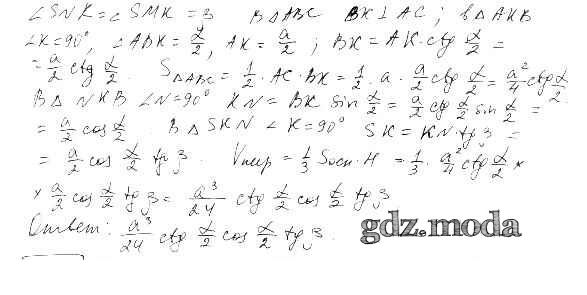 ∠SNK = ∠SMK = β   В △ABC   BK ⊥ AC; В △AKB
∠K = 90°, ∠ABK = α/2, AK = a/2; BK = AK · ctg α/2 =
= a/2 ctg α/2   S△ABC = 1/2 · AC · BK = 1/2 · a · a/2 ctg α/2 = a²/4 ctg α/2
В △ NKB ∠N = 90° KN = BK sin α/2 = a/2 ctg α/2 sin α/2 =
= a/2 cos α/2. В △ SKN ∠K = 90° SK = KN · tg β =
= a/2 cos α/2 tg β. Vпир = 1/3 Sосн · H = 1/3 · a²/4 ctg α/2 ×
× a/2 cos α/2 tg β = a³/24 ctg α/2 cos α/2 tg β
Ответ: a³/24 ctg α/2 cos α/2 tg β.
gdz.moda